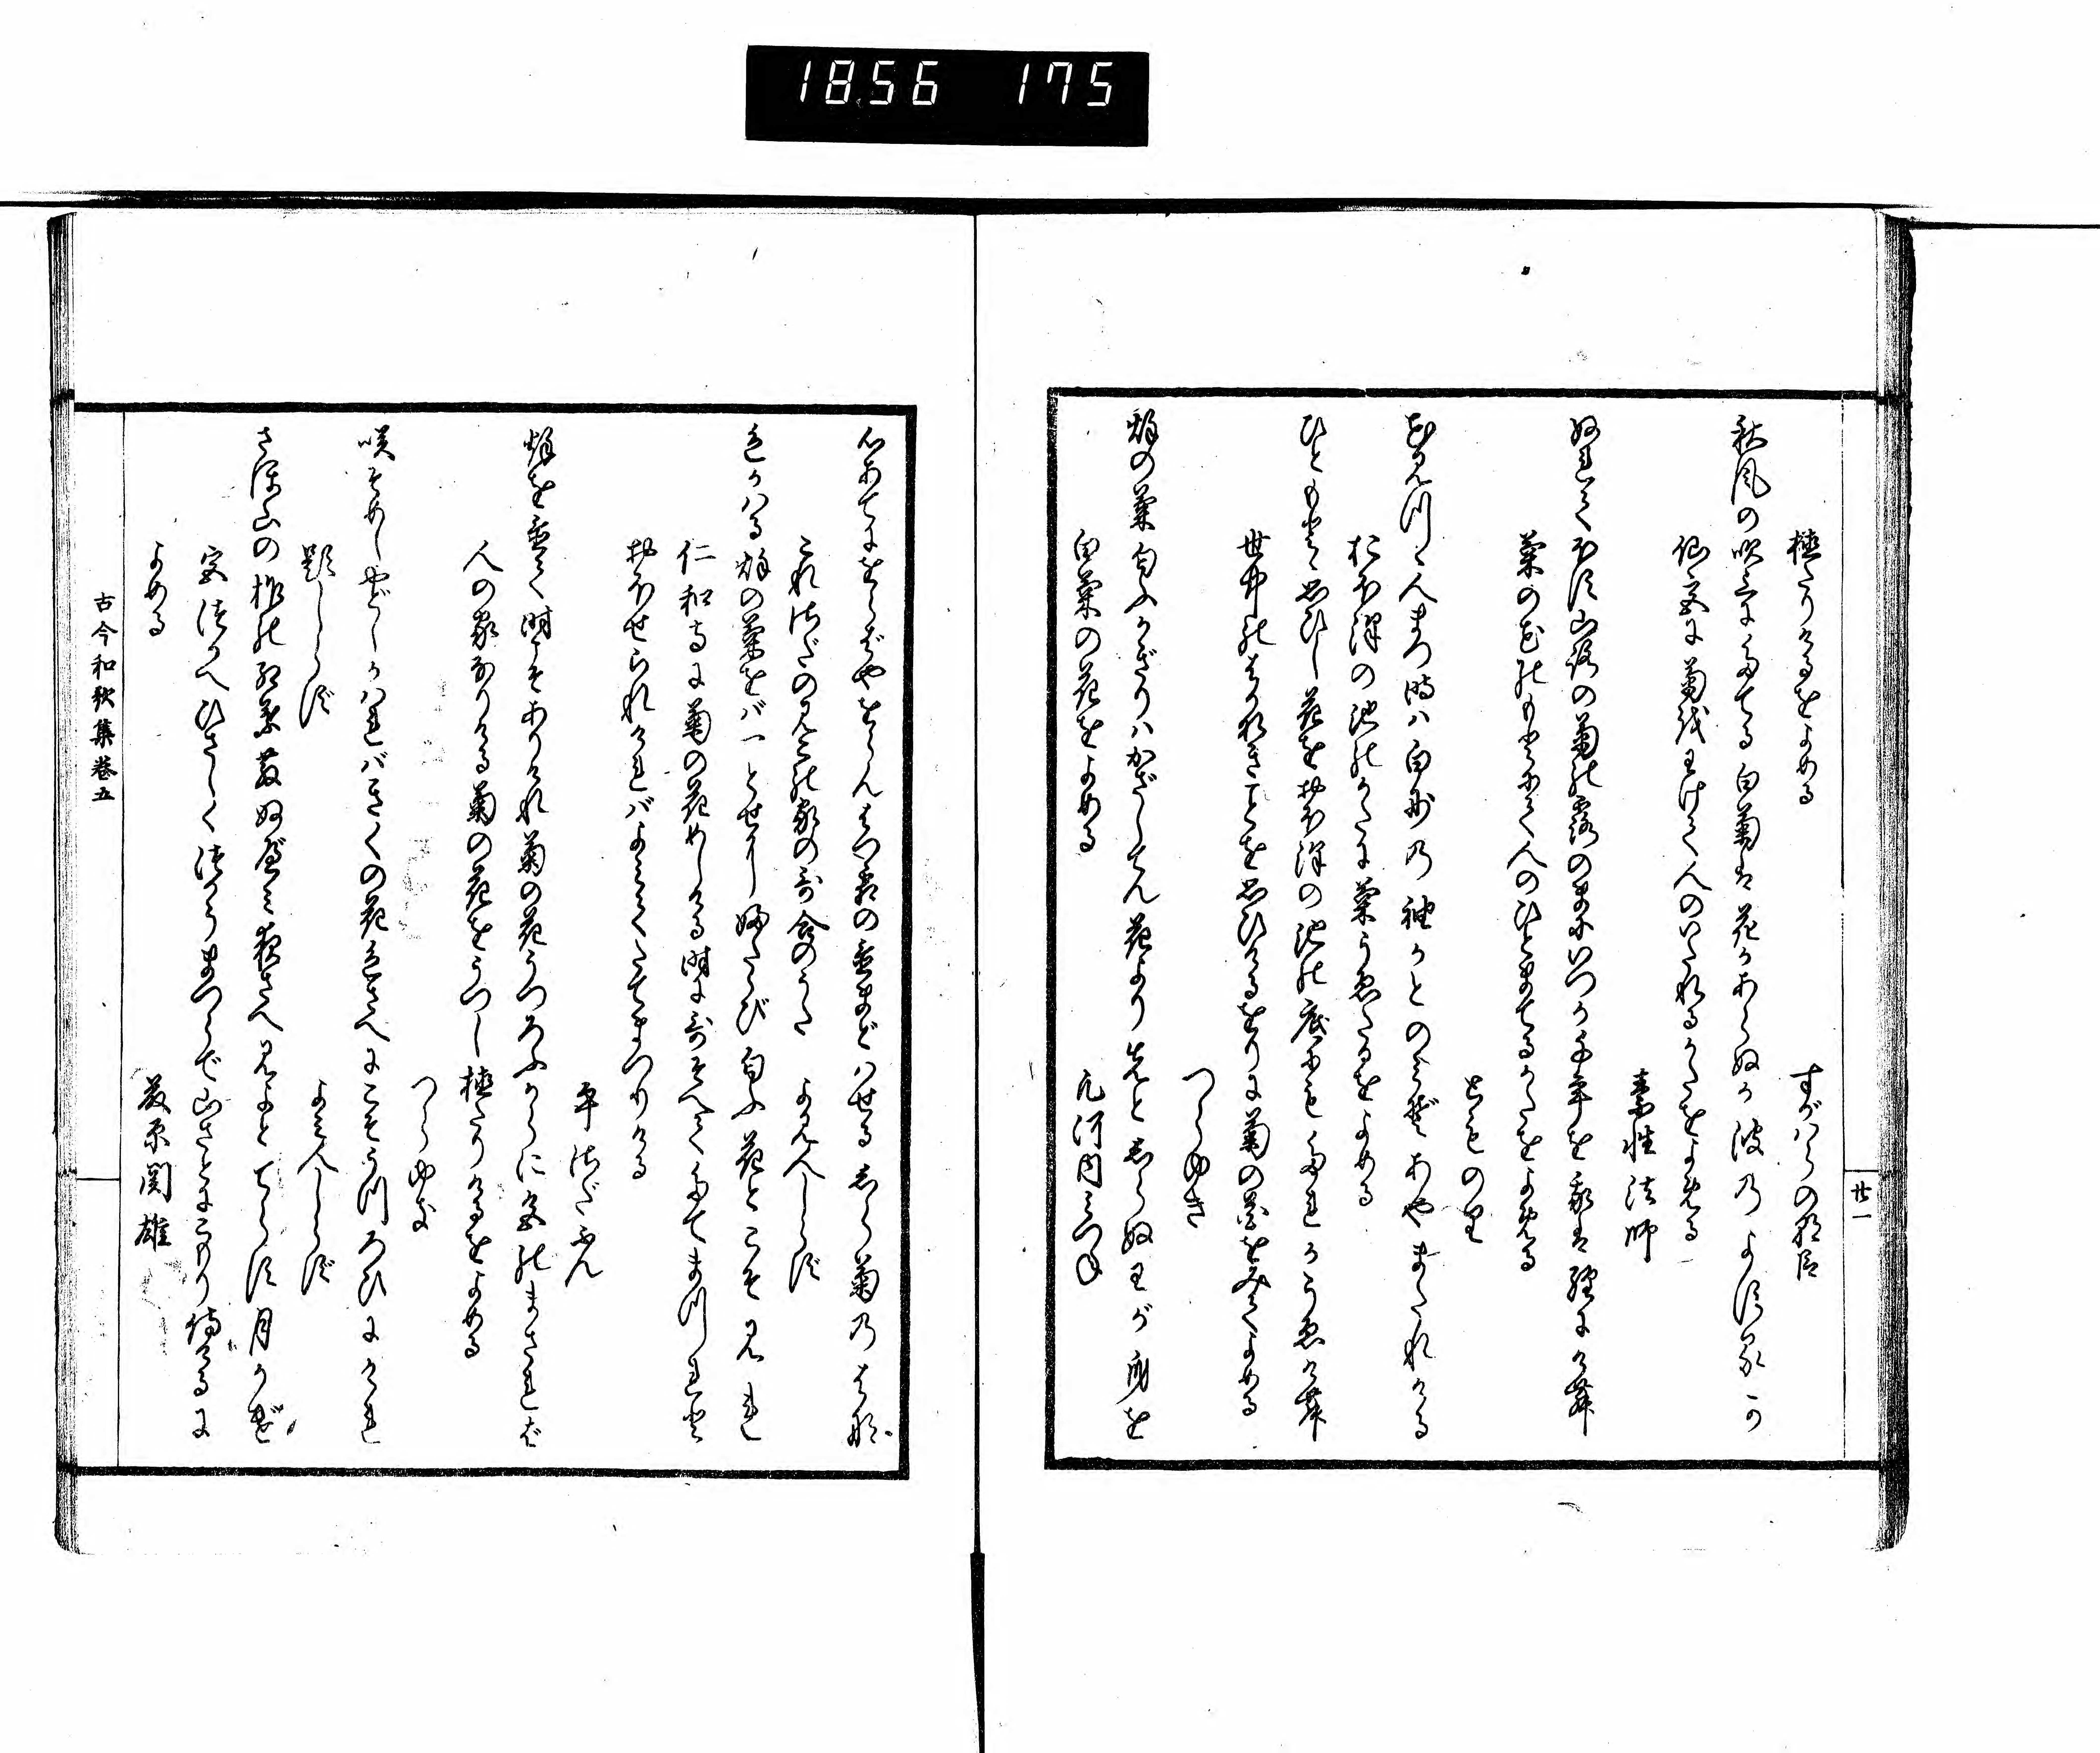 1856 175
廿一
植たりけるをよめる すがはらの朝臣
秋風の吹上にたてる白菊は花かあらぬか波のよするか
仙宮に菊をわけて人のいたれるかたをよめる
素性法師
ぬれてほす山路の菊の露のまにいつか千年を我は経にけむ
菊の花のもとにて人のひとまてるかたをよめる
とものり
花見つゝ人まつ時は白妙の袖かとのみぞあやまたれける
おほ沢の池のかたに菊うゑたるをよめる
ひともとゝ思ひし花をおほ沢の池の底にもたれかうゑけむ
世中のはかなきことを思ひけるをりに菊の花をみてよめる
つらゆき
秋の菊匂ふかぎりはかざしてん花より先としらぬわが身を
白菊の花をよめる 凡河内みつね
心あてにをらばやをらんはつ霜の置まどはせるしら菊のはな
これさだのみこの家の哥合のうた よみ人しらず
色かはる秋の菊をば一とせにふたゝび匂ふ花とこそ見れ
仁和寺に菊の花めしける時に哥そへてたてまつれと
おほせられければよみてたてまつりける
平さだふん
秋を置て時こそありけれ菊の花うつろふからに色のまされば
人の家なりける菊の花をうつし植たりけるをよめる
つらゆき
咲そめしやどしかはればきくの花色さへにこそうつろひにけれ
題しらず よみ人しらず
さほ山の柞の紅葉散ぬべみ夜さへ見よとてらす月かげ
宮づかへひさしくつかうまつらで山ざとにこもり侍けるに
よめる 藤原関雄
古今和歌集巻五